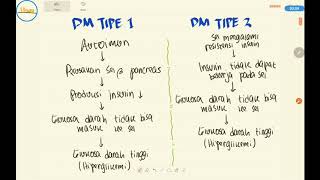 DM TIPE 1
Autoimun
Kerusakan sel β pancreas
Produksi insulin ↓
Glukosa darah tidak bisa
masuk ke sel
Glukosa darah tinggi
(Hiperglikemi)
DM TIPE 2
Sel mengalami
resistensi insulin
Insulin tidak dapat
bekerja pada sel
Glukosa darah tidak bisa
masuk ke sel
Glukosa darah tinggi
(Hiperglikemi)